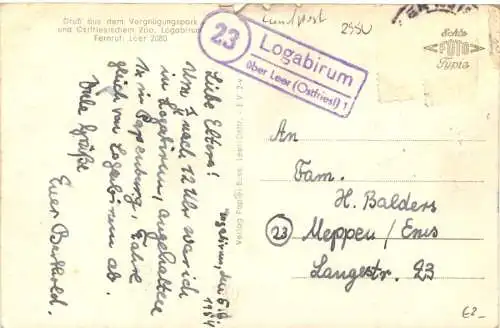 Gruß aus dem Vergnügungspark
und Ostfriesischen Zoo, Logabirum
Fernruf: Leer 2080
Landpost
2950
23
Logabirum
über Leer (Ostfriesl) 1
Echte
FOTO
Typie
Logabirum, den
1954
Liebe Eltern!
Um nach 12 Uhr war ich
in Logabirum, angehalten
in Papenburg, Fahre
gleich von Logabirum ab.
Viele Grüße
Euer Berthold.
An
Fam.
H. Balders
23 Meppen/Ems
Langestr. 23
€2-